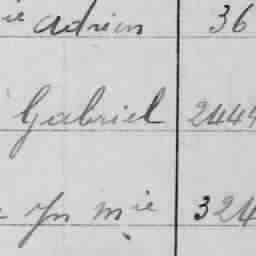 ie adrien 36
Gabriel 2444
Jn mie 324